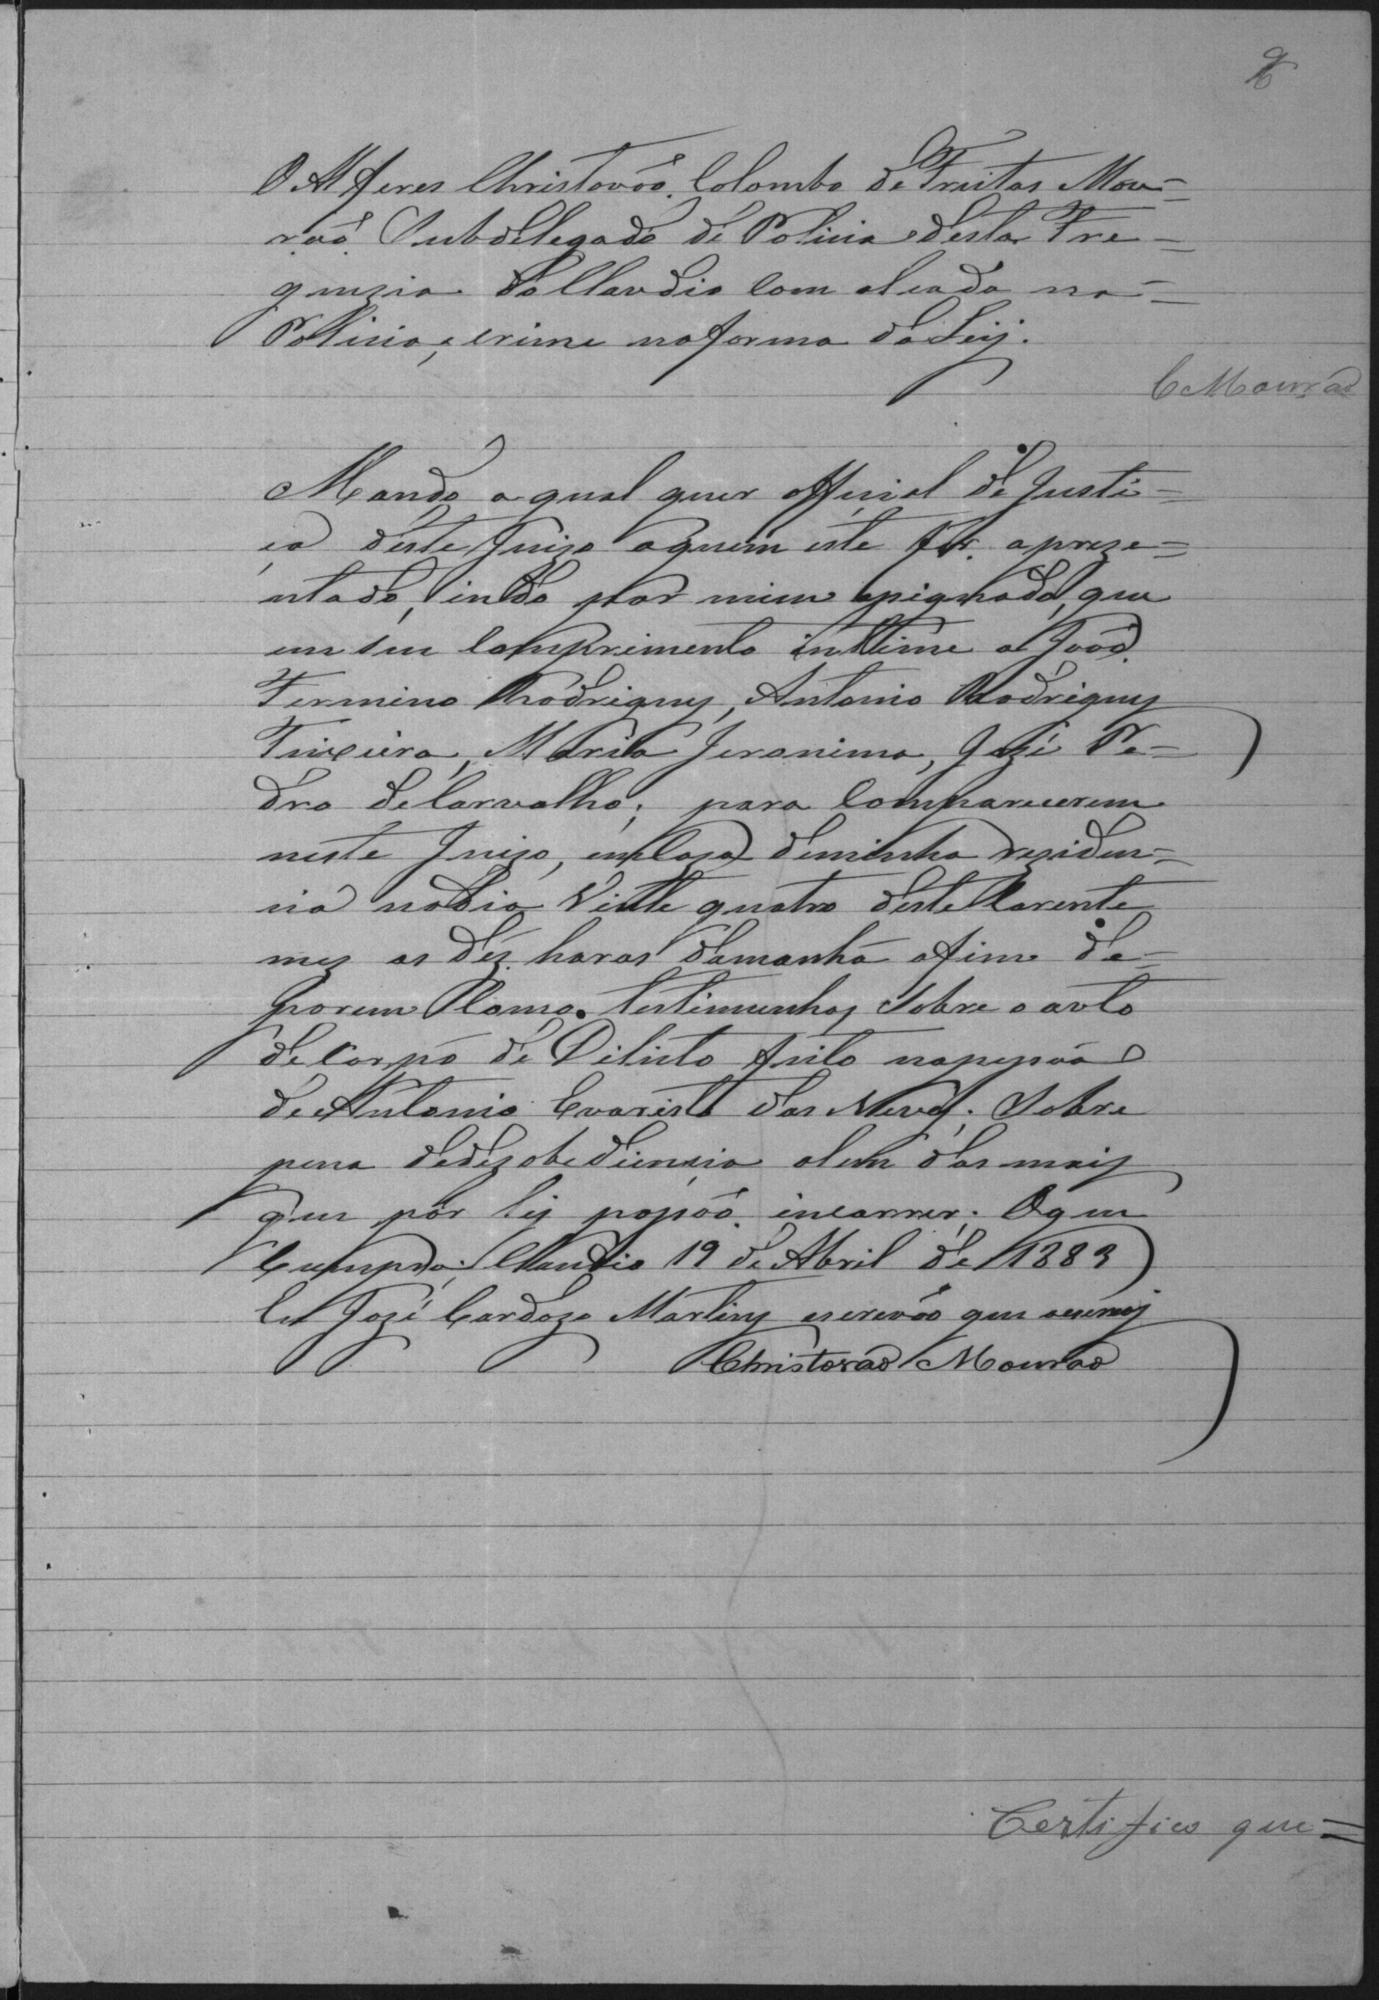 O Alferes Christovão Colombo de Freitas Mou=
rão Subdelegado de Policia desta Fre=
guezia do Claudio Com alcada na=
Policia, e crime na forma da Leij.
C Mourão
Mando a qual quer official de Justi=
ça deste Juizo aquem este for apreze=
ntado, indo por mim asignado, que
em seu Comprimento intime a João
Fermino Rodrigues, Antonio Rodrigues
Teixeira, Maria Jeronima, Jozé Pe=
dro de Carvalho; para Comparecerem
neste Juizo, em Caza de minha reziden=
cia no dia Vinte quatro deste Corente
mez as déz horas da manhã afim de=
porem Como testimunhas Sobre o auto
de Corpo de Delicto feito na pesoa
de Antonio Evaristo das Neves. Sobre
pena de dezobediencia alem das mais
que por leij posão incorrer. O que
Cumpra. Claudio 19 de Abril de 1883
Eu Jozé Cardozo Martins escrevão que escrevij
Christovão Mourão
Certifico que=